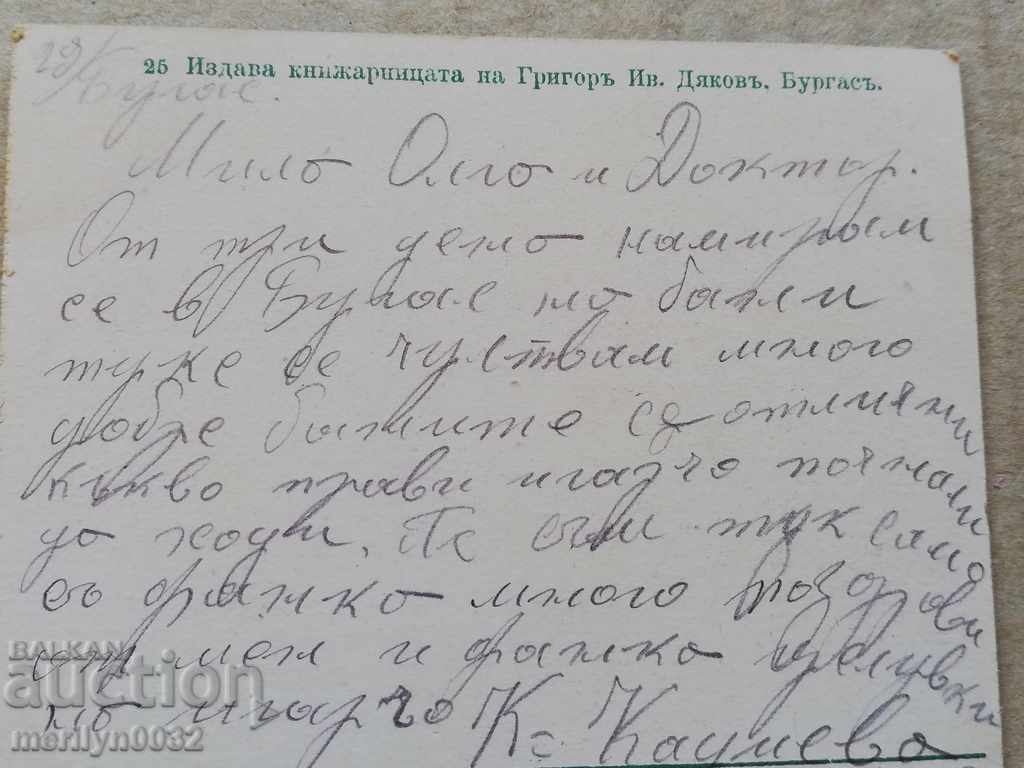 29/V
25 Издава книжарницата на Григоръ Ив. Дяковъ. Бургасъ.
Бугас.
Мила Олго и Доктор.
От три дена намирам
се в Бугас на бани
туке се чуствам много
добре баните са отлични
какво прави почна ли
да ходи. Аз съм тук само
съ фанка много поздрави
от мен и фанка целувки
на К.
BALKAN
auction
merilyn0032